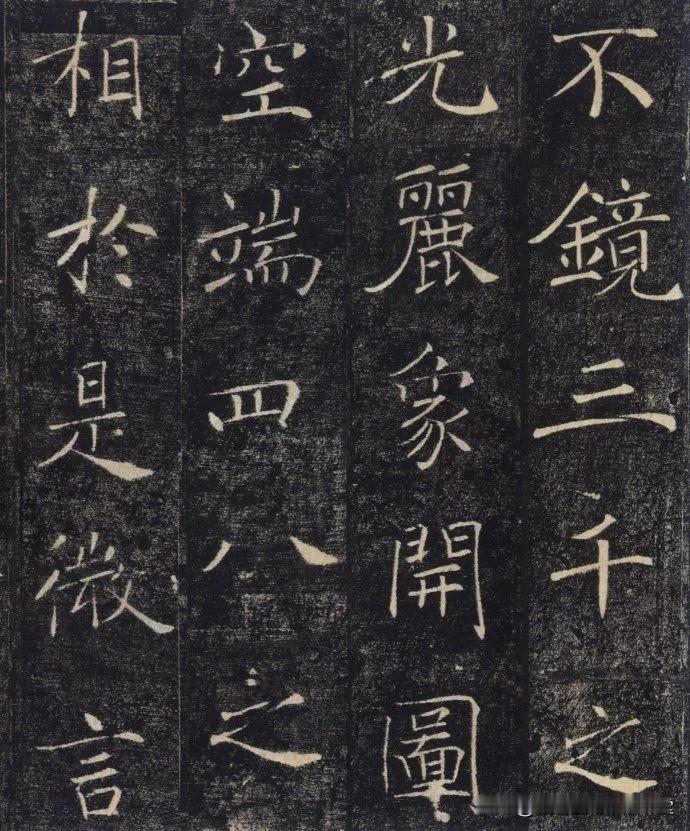 不鏡三千之
光麗象開圖
空端四八之
相於是微言